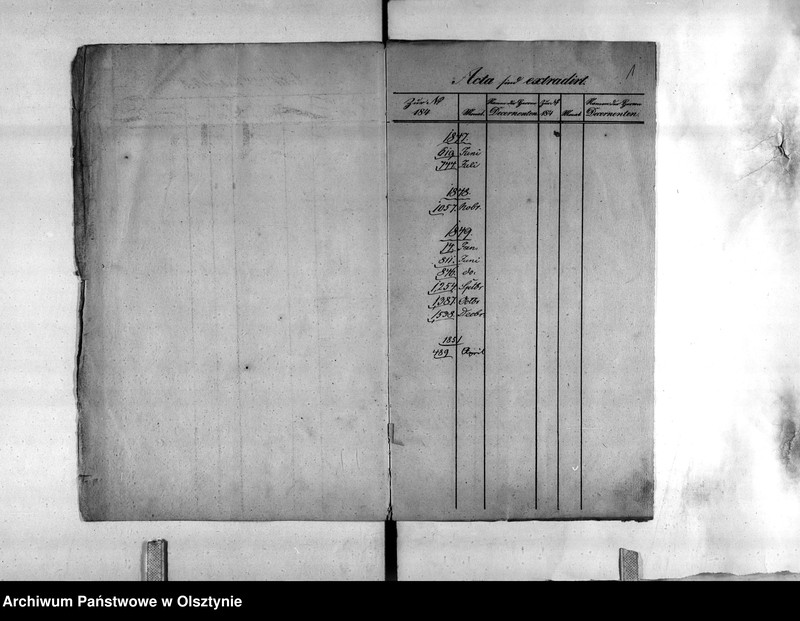 1
Acta sind extradirt.
Zur № 184 Monat. Namen der Herren Decernenten. Zur № 184 Monat Namen der Herren Decernenten.
1847.
619. Juni
777. Juli
1848.
1057. Novbr.
1849.
17. Jan.
811. Juni
846. do.
1254. Sptbr
1387. Octbr
1538. Decbr.
1851
489. April
Archiwum Państwowe w Olsztynie